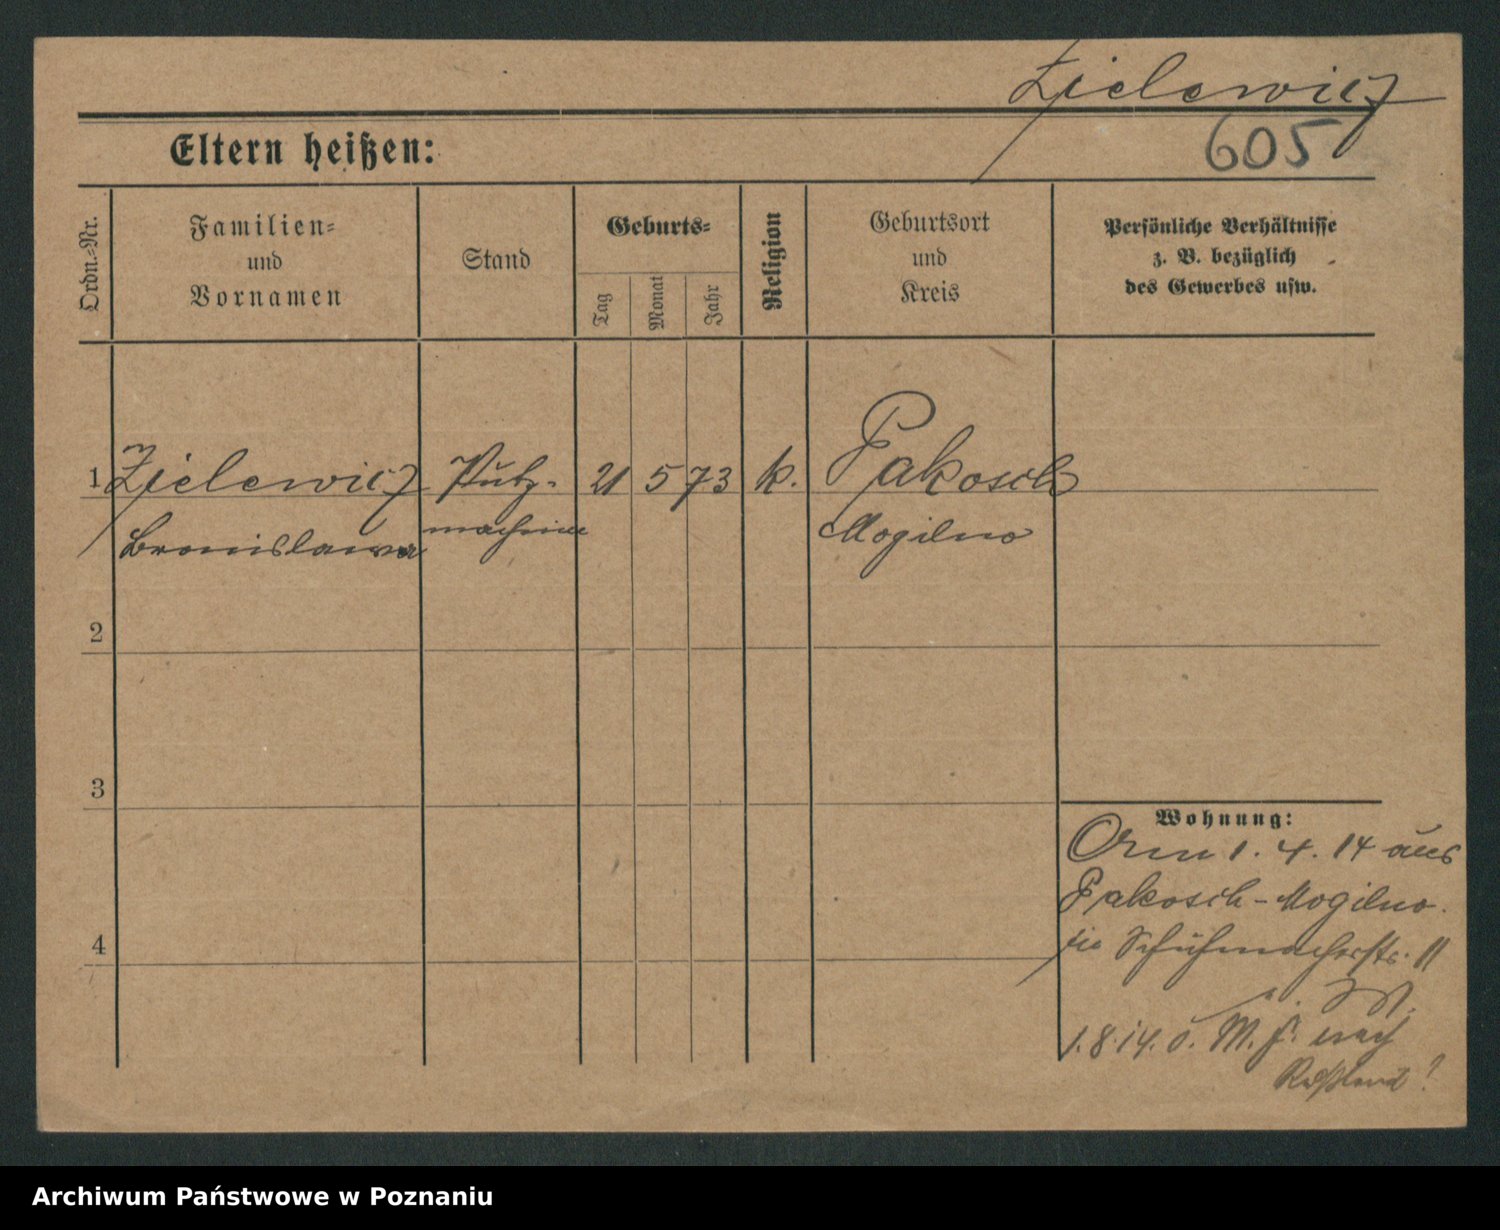 Zielewicz
605
Eltern heißen:
Ordn.-Nr.
Familien-
und
Vornamen
Stand
Geburts-
Tag
Monat
Jahr
Religion
Geburtsort
und
Kreis
Persönliche Verhältnisse
z. B. bezüglich
des Gewerbes usw.
1 Zielewicz Putz- 21 5 73 k. Pakosch
Bronislawa macherin Mogilno
2
3
4
Wohnung:
1. 4. 14 aus
Pakosch-Mogilno.
Schuhmacherstr. 11
1.8.14. o. M. f. nach
Rußland?
Archiwum Państwowe w Poznaniu